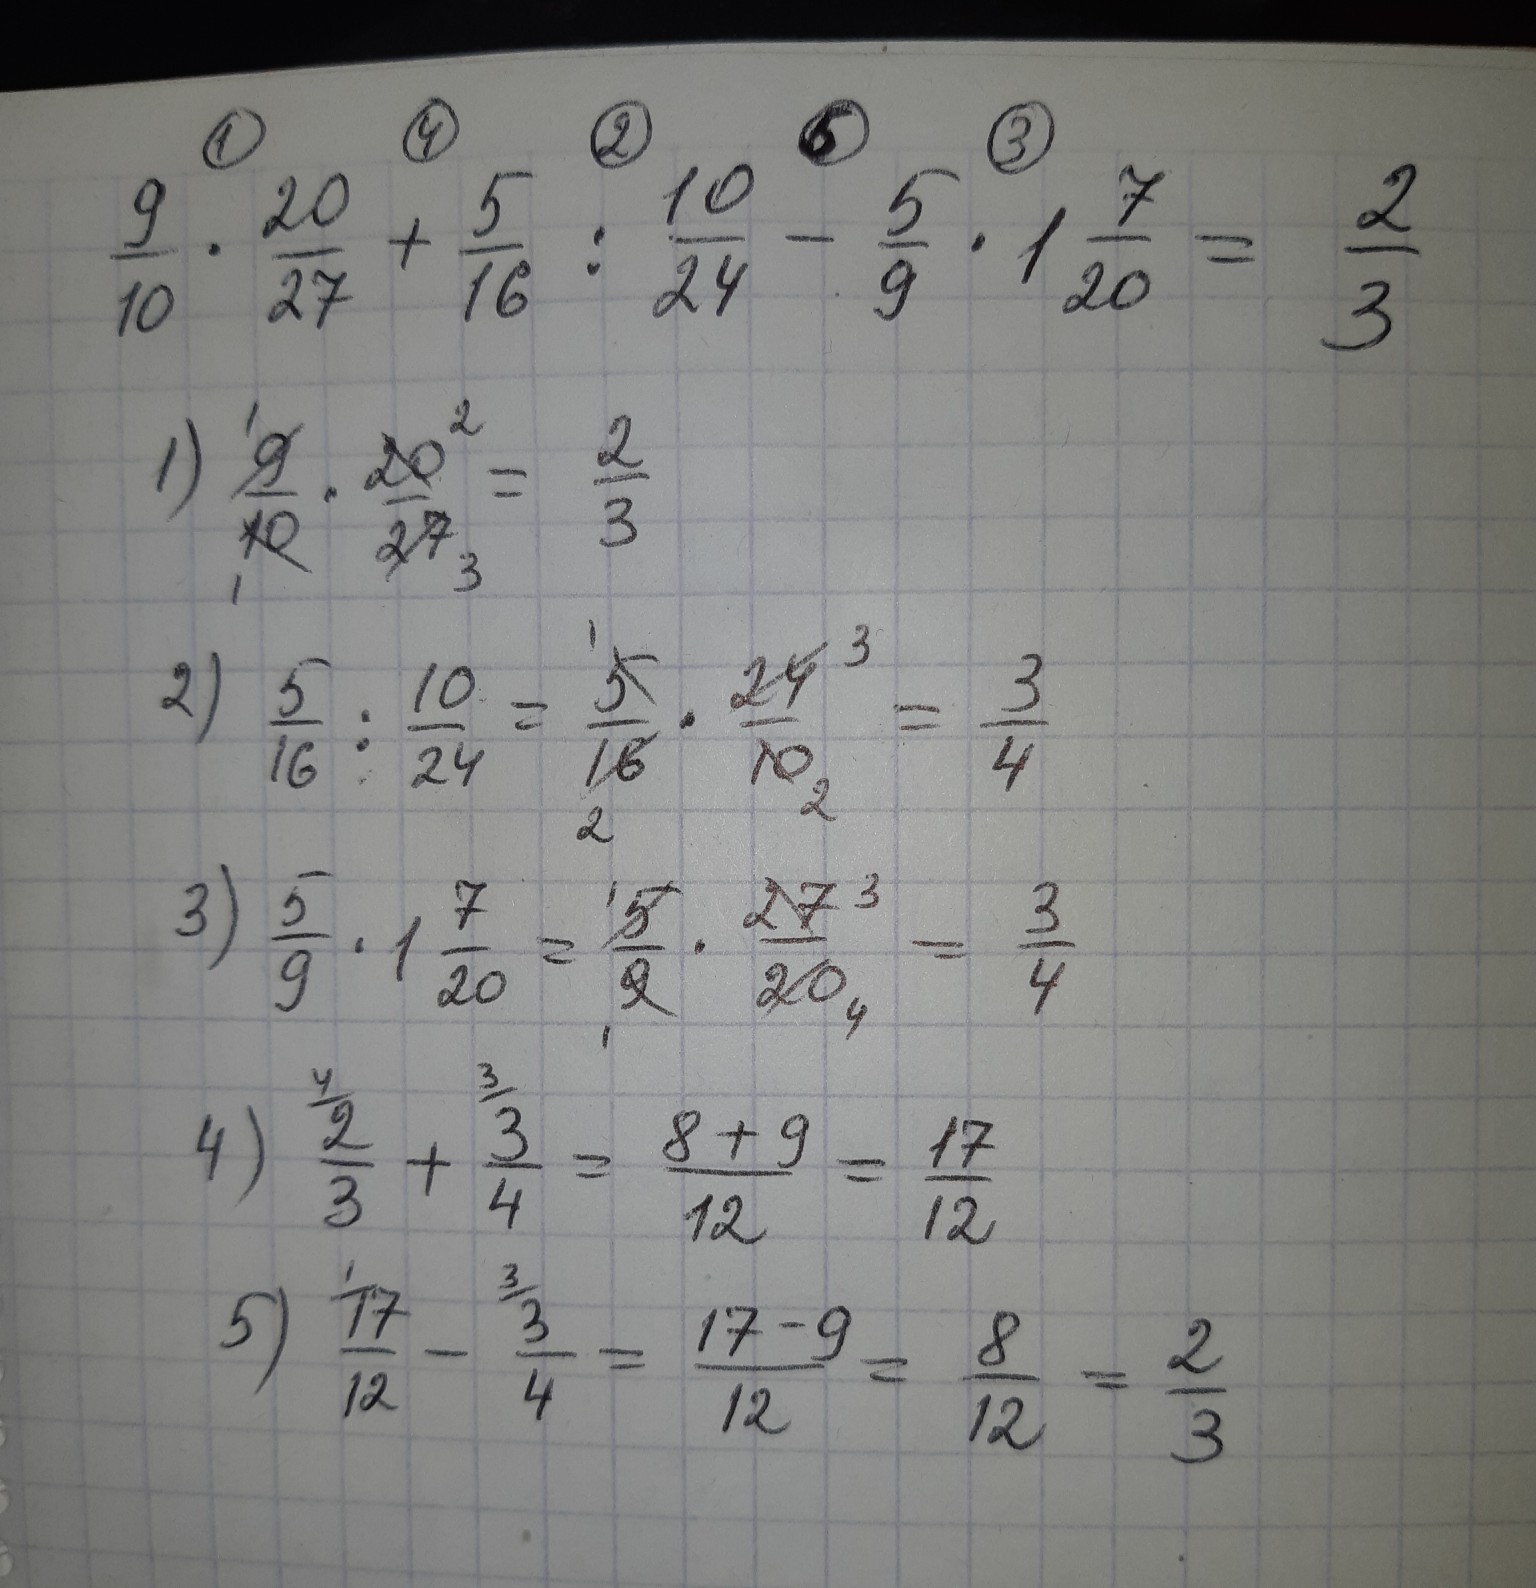 ① ④ ② ⑤ ③
9/10 · 20/27 + 5/16 : 10/24 - 5/9 · 1 7/20 = 2/3
1) 9/10 · 20/27 = 2/3
1 2 1 3
2) 5/16 : 10/24 = 5/16 · 24/10 = 3/4
1 3 2 2
3) 5/9 · 1 7/20 = 5/9 · 27/20 = 3/4
1 3 1 4
4 3
4) 2/3 + 3/4 = 8+9/12 = 17/12
1 3
5) 17/12 - 3/4 = 17-9/12 = 8/12 = 2/3